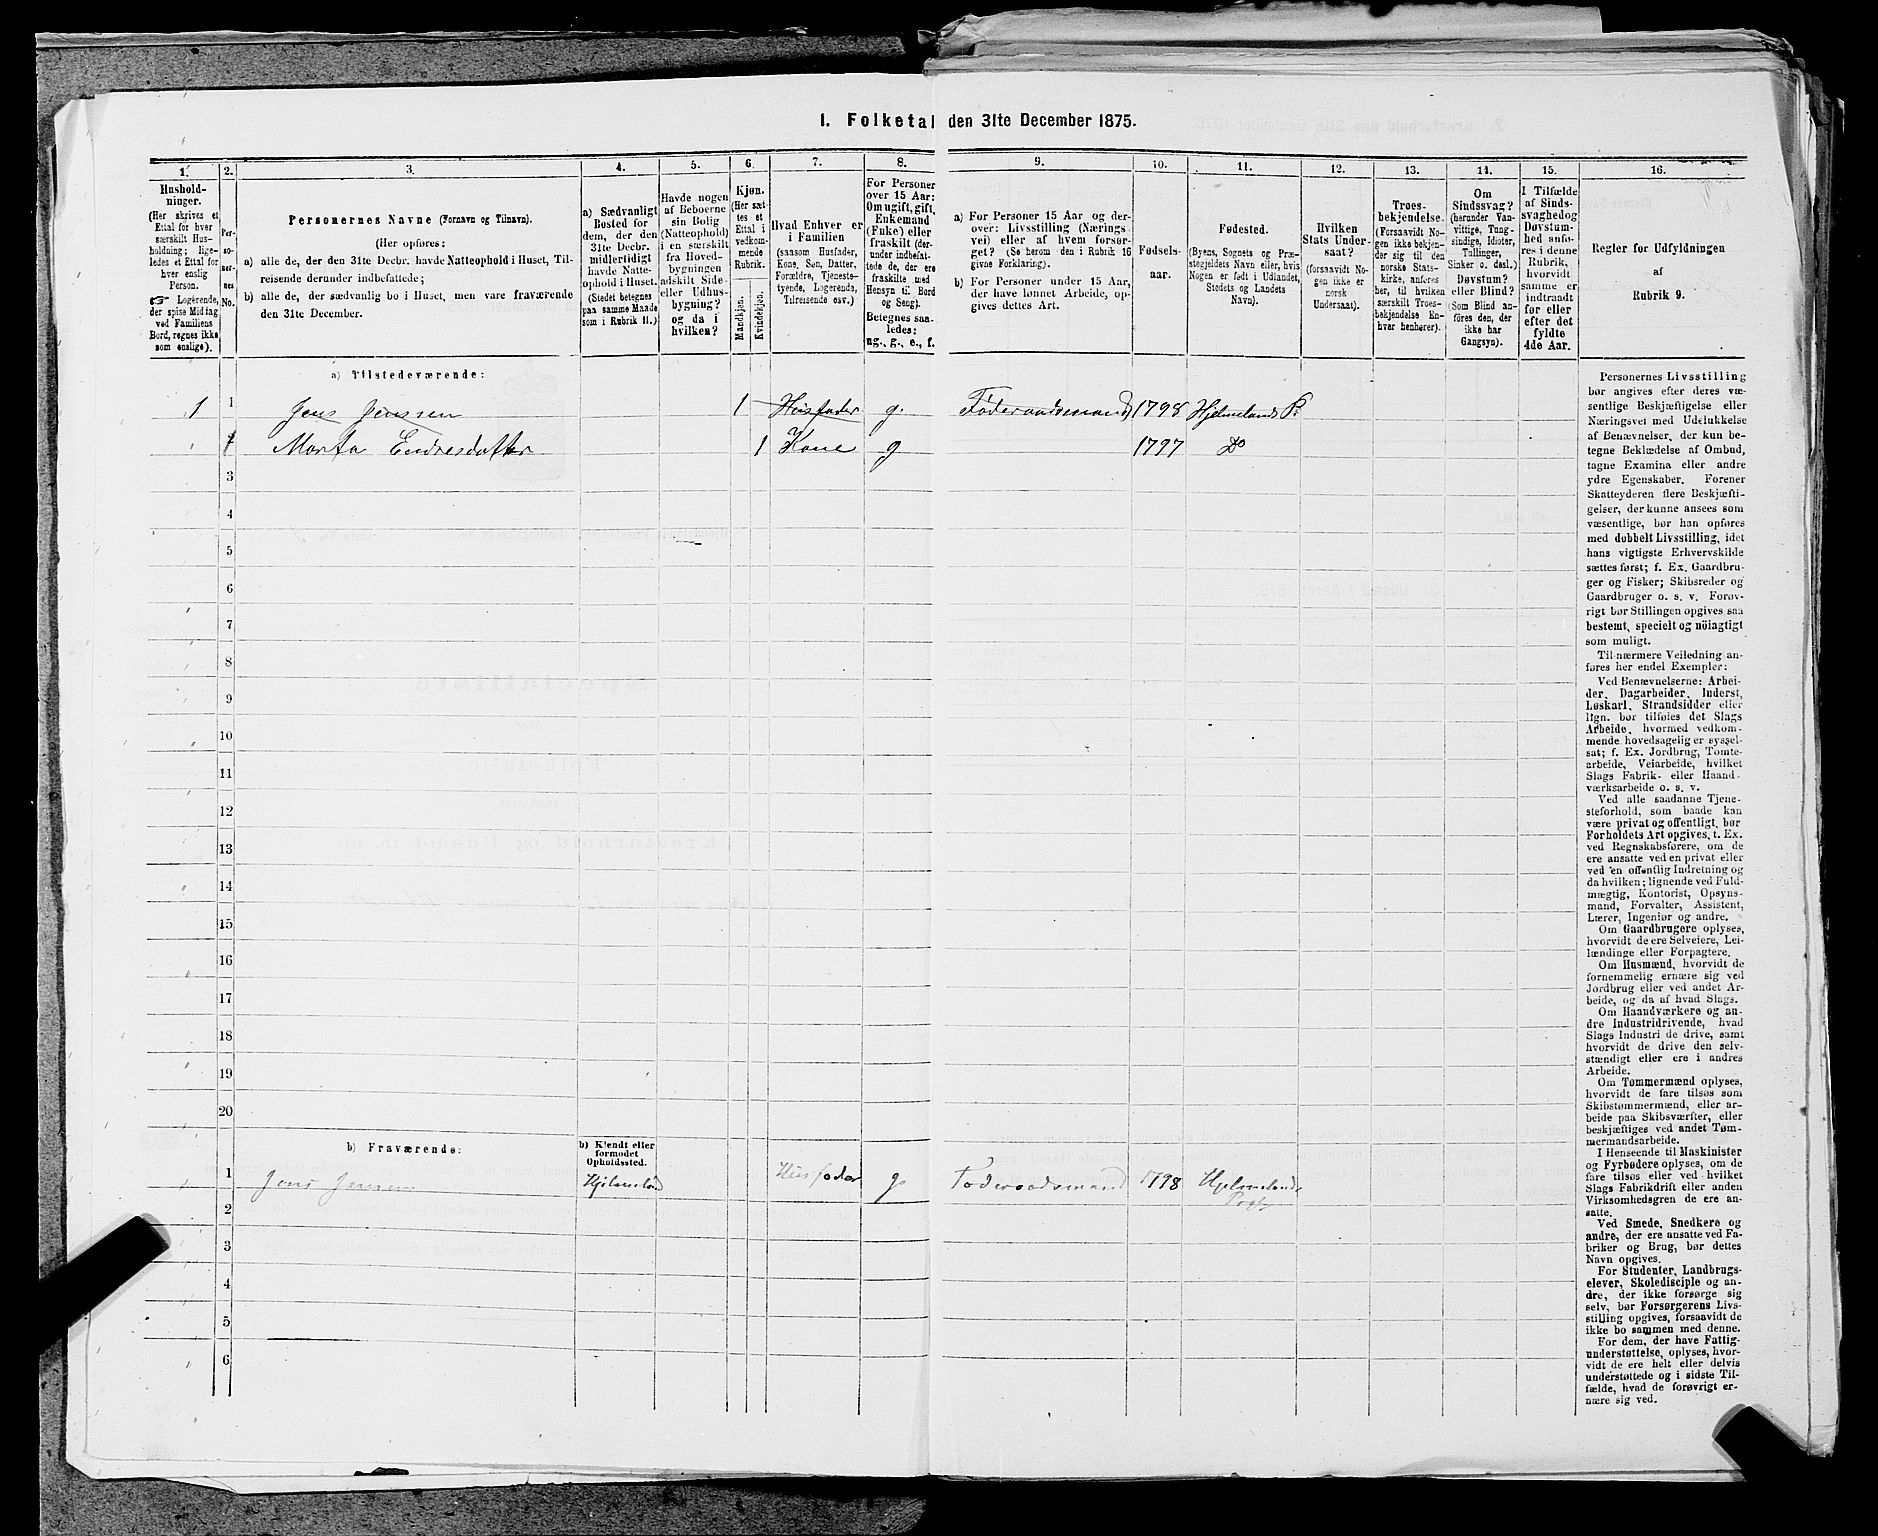 1. Folketal den 31te December 1875.
1. 2. 3. 4. 5. 6. 7. 8. 9. 10. 11. 12. 13. 14. 15. 16.
Hushold-
ninger.
(Her skrives et
Ettal for hver
særskilt Hus-
holdning; lige-
ledes et Ettal for
hver enslig
Person.
☞ Logerende,
der spise Middag
ved Familiens
Bord, regnes ikke
som enslige).
Per-
so-
ner-
nes
No.
Personernes Navne (Fornavn og Tilnavn).
(Her opføres:
a) alle de, der den 31te Decbr. havde Natteophold i Huset, Til-
reisende derunder indbefattede;
b) alle de, der sædvanlig bo i Huset, men vare fraværende
den 31te December.
a) Sædvanligt
Bosted for
dem, der den
31te Decbr.
midlertidigt
havde Natte-
ophold i Huset.
(Stedet betegnes
paa samme Maade
som i Rubrik 11.)
Havde nogen
af Beboerne
sin Bolig
(Natteophold)
i en særskilt
fra Hoved-
bygningen
adskilt Side-
eller Udhus-
bygning?
og da i
hvilken?
Kjøn.
(Her sæt-
tes et
Ettal i
vedkom-
mende
Rubrik.
Mandkjøn.
Kvindekjøn.
Hvad Enhver er
i Familien
(saasom Husfader,
Kone, Søn, Datter,
Forældre, Tjeneste-
tyende, Logerende,
Tilreisende osv.)
For Personer
over 15 Aar:
Om ugift, gift,
Enkemand
(Enke) eller
fraskilt (der-
under indbefat-
tede de, der ere
fraskilte med
Hensyn til Bord
og Seng).
Betegnes saa-
ledes:
ug., g., e., f.
a) For Personer 15 Aar og der-
over: Livsstilling (Nærings-
vei) eller af hvem forsør-
get? (Se herom den i Rubrik 16
givne Forklaring).
b) For Personer under 15 Aar,
der have lønnet Arbeide, op-
gives dettes Art.
Fødsels-
aar.
Fødested.
(Byens, Sognets og Præ-
stegjeldets Navn eller, hvis
Nogen er født i Udlandet,
Stedets og Landets
Navn).
Hvilken
Stats Under-
saat?
(forsaavidt No-
gen ikke er
norsk
Undersaat).
Troes-
bekjendelse.
(Forsaavidt No-
gen ikke bekjen-
der sig til den
norske Stats-
kirke, anføres
her, til hvilken
særskilt Troes-
bekjendelse En-
hver henhører).
Om
Sindssvag?
(herunder Van-
vittige, Tung-
sindige, Idioter,
Tullinger,
Sinker o. desl.)
Døvstum?
eller Blind?
(Som Blind an-
føres den, der
ikke har
Gangsyn).
I Tilfælde
af Sinds-
svaghed og
Døvstum-
hed anfø-
res i denne
Rubrik,
hvorvidt
samme er
indtraadt
før eller
efter det
fyldte
4de Aar.
Regler for Udfyldningen
af
Rubrik 9.
a) Tilstedeværende:
1 1 Jens Jenssen 1 Husfader g. Føderaadsmand 1798 Hjelmelands P.
Marta Endresdatter 1 Kone g 1797 Do
3
4
5
6
7
8
9
10
11
12
13
14
15
16
17
18
19
20
b) Fraværende:
b) Kjendt eller
formodet
Opholdssted.
1 Jens Jensen Hjelmeland Husfader g. Føderaadsmand 1798 Hjelmelands
Prgj
2
3
4
5
6
Personernes Livsstilling
bør angives efter deres væ-
sentlige Beskjæftigelse eller
Næringsvei med Udelukkelse
af Benævnelser, der kun be-
tegne Beklædelse af Ombud,
tagne Examina eller andre
ydre Egenskaber. Forener
Skatteyderen flere Beskjæfti-
gelser, der kunne ansees som
væsentlige, bør han opføres
med dobbelt Livsstilling, idet
hans vigtigste Erhvervskilde
sættes først; f. Ex. Gaardbru-
ger og Fisker; Skibsreder og
Gaardbruger o. s. v. Forøv-
rigt bør Stillingen opgives saa
bestemt, specielt og nöiagtigt
som muligt.
Til nærmere Veiledning an-
føres her endel Exempler:
Ved Benævnelserne: Arbei-
der, Dagarbeider, Inderst,
Løskarl, Strandsidder eller
lign. bør tilføies det Slags
Arbeide, hvormed vedkom-
mende hovedsagelig er syssel-
sat; f. Ex. Jordbrug, Tomte-
arbeide, Veiarbeide, hvilket
Slags Fabrik- eller Haand-
værksarbeide o. s. v.
Ved alle saadanne Tjene-
steforhold, som baade kan
være privat og offentligt, bør
Forholdets Art opgives, t. Ex.
ved Regnskabsførere, om de
ere ansatte ved en privat eller
ved en offentlig Indretning og
da hvilken; lignende ved Fuld-
mægtig, Kontorist, Opsyns-
mand, Forvalter, Assistent,
Lærer, Ingeniør og andre.
Om Gaardbrugere oplyses,
hvorvidt de ere Selveiere, Lei-
lændinge eller Forpagtere.
Om Husmænd, hvorvidt de
fornemmelig ernære sig ved
Jordbrug eller ved andet Ar-
beide, og da af hvad Slags.
Om Haandværkere og an-
dre Industridrivende, hvad
Slags Industri de drive, samt
hvorvidt de drive den selv-
stændigt eller ere i andres
Arbeide.
Om Tømmermænd oplyses,
hvorvidt de fare tilsøs som
Skibstømmermænd, eller ar-
beide paa Skibsværfter, eller
beskjæftiges ved andet Tøm-
mermandsarbeide.
I Henseende til Maskinister
og Fyrbødere oplyses, om de
fare tilsøs eller ved hvilket
Slags Fabrikdrift eller anden
Virksomhedsgren de ere an-
satte.
Ved Smede, Snedkere og
andre, der ere ansatte ved Fa-
briker og Brug, bør dettes
Navn opgives.
For Studenter, Landbrugs-
elever, Skoledisciple og an-
dre, der ikke forsørge sig
selv, bør Forsørgerens Livs-
stilling opgives, forsaavidt de
ikke bo sammen med denne.
For dem, der have Fattig-
understøttelse, oplyses, hvor-
vidt de ere helt eller delvis
understøttede og i sidste Til-
fælde, hvad de forøvrigt er-
nære sig ved.